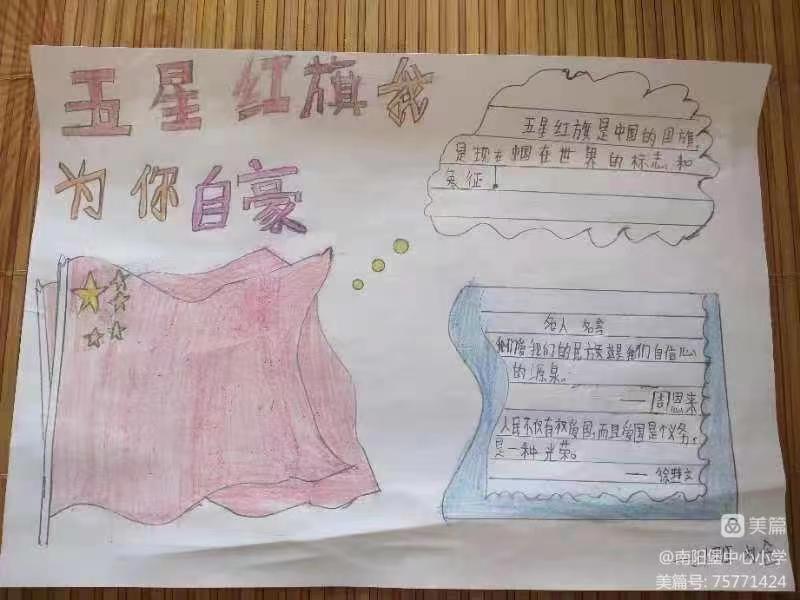 五星红旗我
为你自豪
五星红旗是中国的国旗,
是现在中国在世界的标志和
象征
名人名言
我们爱我们的民族这是我们自信心
的源泉。
——周恩来
人民不仅有权爱国,而且爱国是个义务,
是一种光荣。
——徐特立
美篇
@南阳堡中心小学
美篇号: 75771424